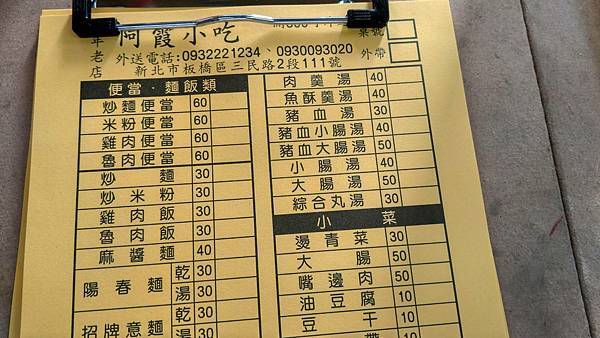 年老店
阿霞小吃
桌號
外送電話:0932221234、0930093020
外帶
新北市板橋區三民路2段111號
便當．麵飯類
炒麵便當 60
米粉便當 60
雞肉便當 60
魯肉便當 60
炒麵 30
炒米粉 30
雞肉飯 30
魯肉飯 30
麻醬麵 40
陽春麵 乾 30
湯 30
招牌意麵 乾 30
湯 30
肉羹湯 40
魚酥羹湯 40
豬血湯 30
豬血小腸湯 40
豬血大腸湯 50
小腸湯 40
大腸湯 50
綜合丸湯 30
小菜
燙青菜 30
大腸 50
嘴邊肉 50
油豆腐 10
豆干 10
帶 10